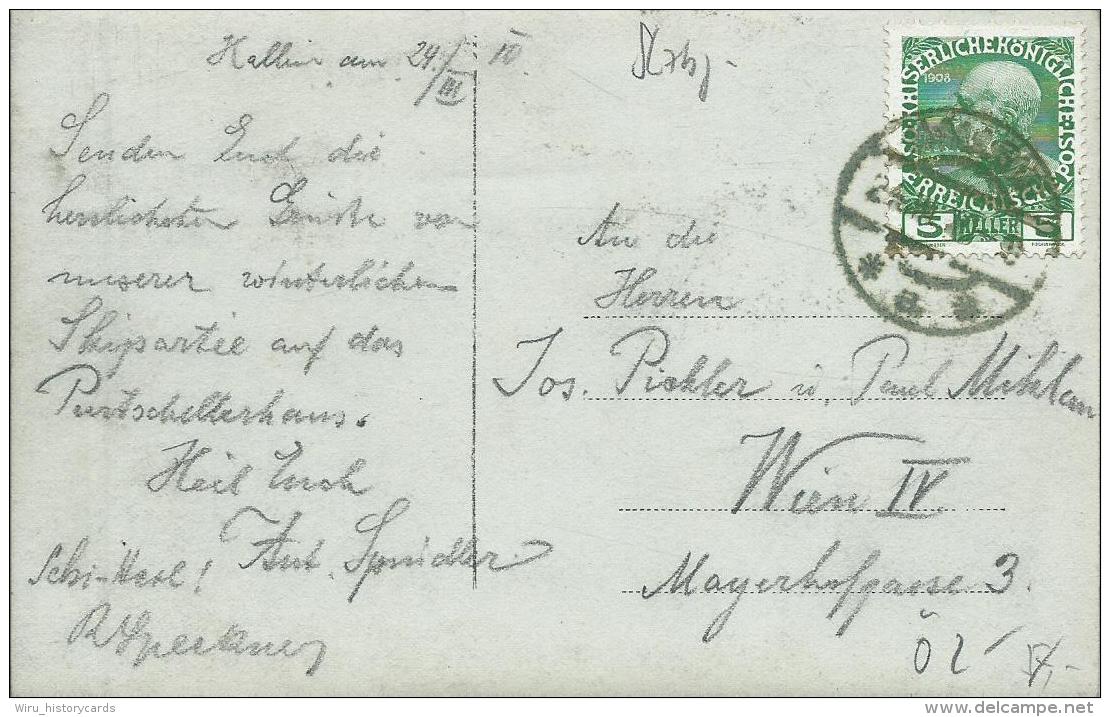 Hallein am 24./III 10.
Senden Euch die
herrlichsten Grüße von
unserer winterlichen
Skipartie auf das
Purtschellerhaus.
Heil Euch
Ant. Spindler
Schi-Heil!
An die
Herren
Jos. Pichler u. Paul
Wien IV
Mayerhofgasse 3.
KAISERLICHE KÖNIGLICHE ÖSTERREICHISCHE
1908
5 HELLER 5
Wiru_historycards
www.delcampe.net